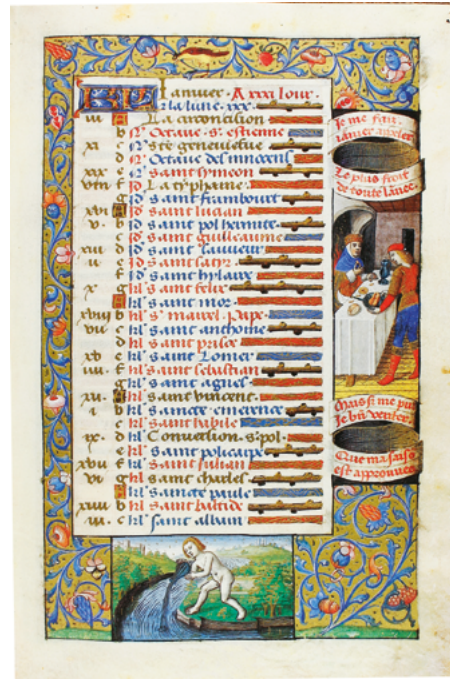 KL Januier. A xxxi iour.
la lune. xxx.
iii A La circoncision
b Octave. s. estienne
xi c ste geneuiefue
d Octave des innocens
xix e saint symeon
viii f Id La typhaine.
g Id saint frambourt
xvi A Id saint lucian
v. b Id saint pol hermite
c Id saint guillaume
xiii d Id saint
ii e Id saint satyr.
f Id saint hylaire
x g kl' saint felix
A kl' saint mor.
xviii b kl' s. marcel. pape.
vii c kl' saint anthoine
d kl' saint prisce
xv e kl' saint Lomer
iiii. f kl' saint sebastian
g kl' saint agnes
xii. A kl' saint vincent.
i b kl' saincte emerence
c kl' saint babile
ix. d kl' Conuersion. s. pol.
e kl' saint policarpe
xvii f kl' saint iulian
vi g kl' saint charles
A kl' saincte paule
xiiii b kl' saint baltide
iii. c kl' saint albain
Je me fais
ianuier appeler.
Le plus froit
de toute lanee.
Mais si me puis
Je bien venter.
Que ma saison
est approuuee